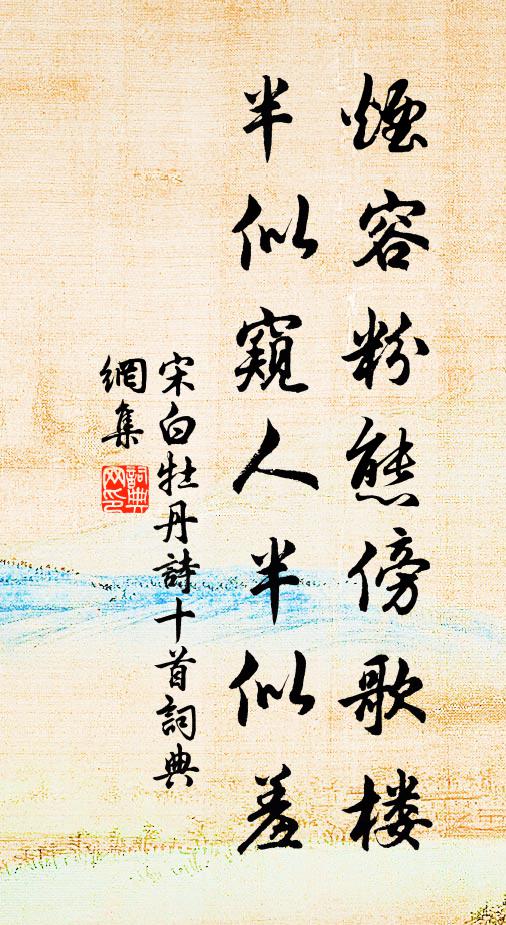 煙容粉態傍歌楼
半似窺人半似羞
宋白牡丹詩十首詞典
網集
詞典网印